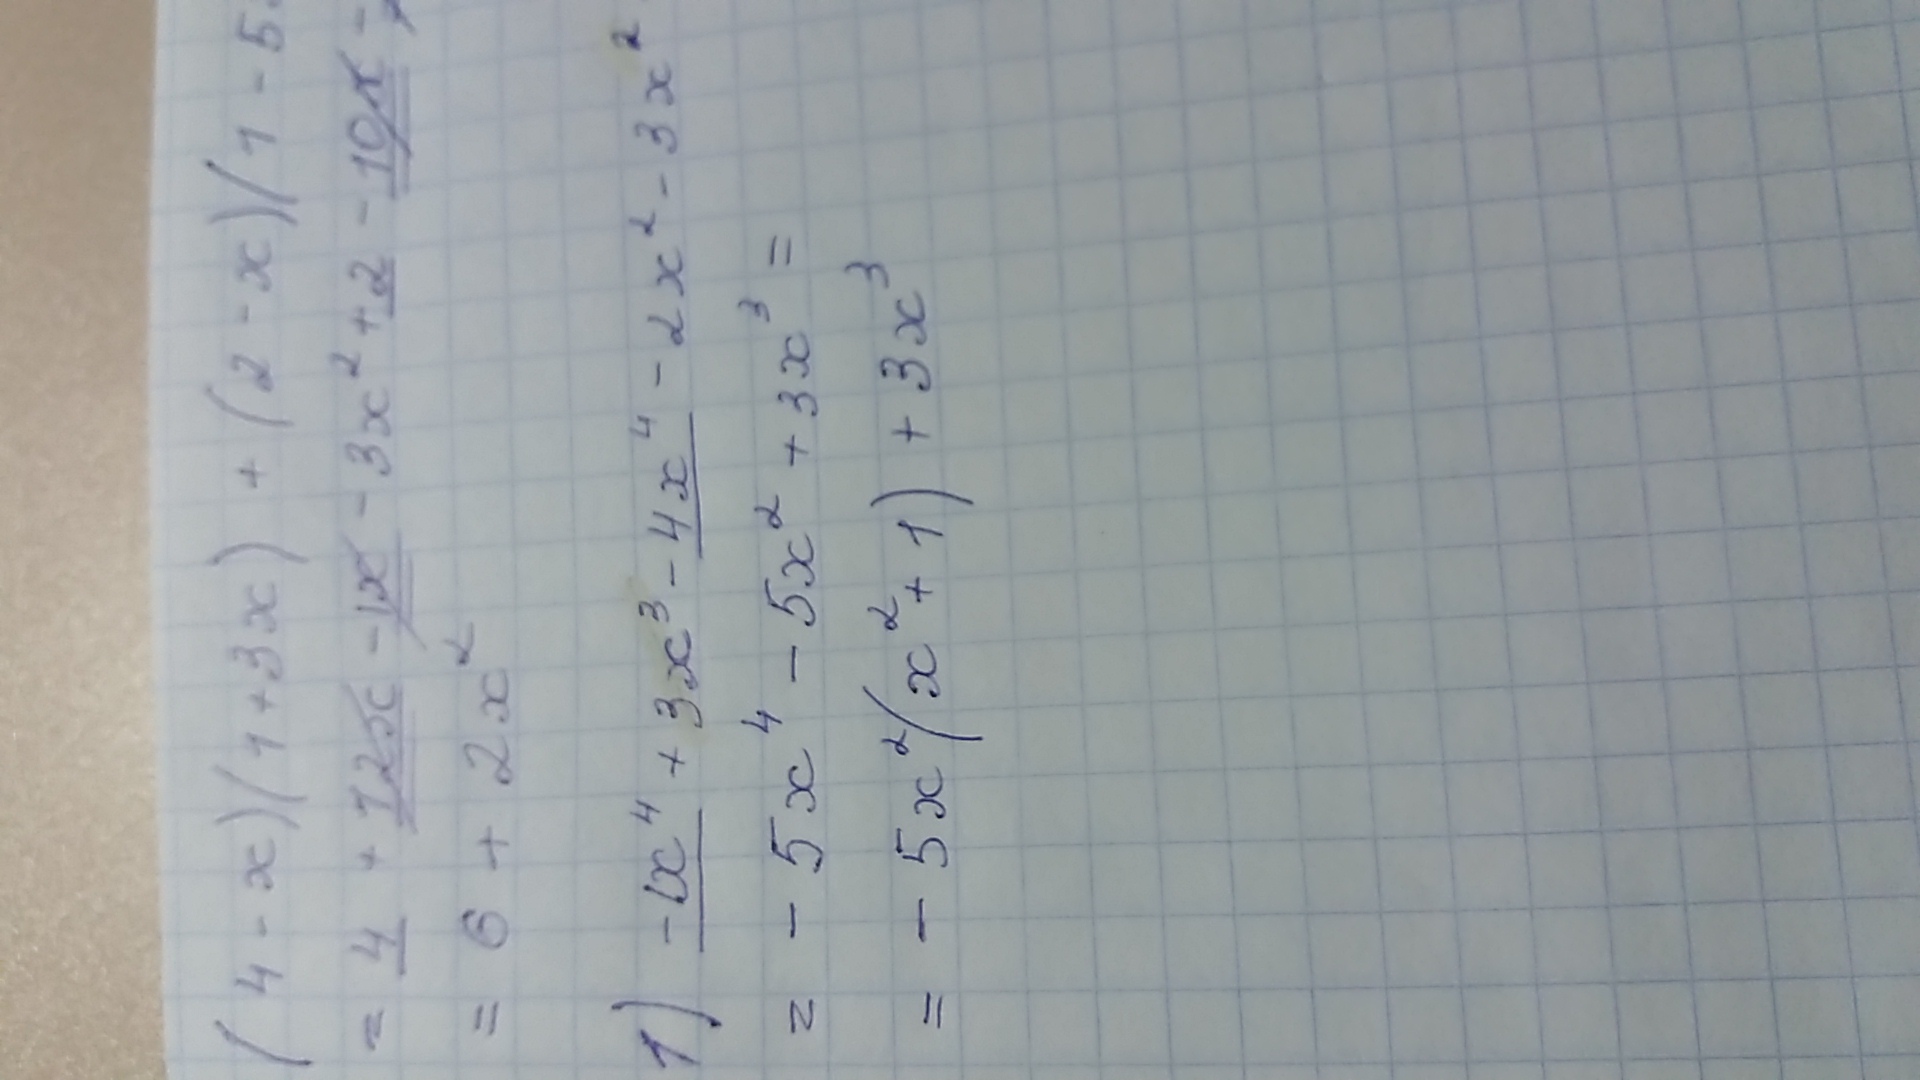 (4-x)(1+3x) + (2-x)(1-5
= 4 + 12x - 1x - 3x² + 2 - 10x -
= 6 + 2x²
1) -1x⁴ + 3x³ - 4x⁴ - 2x² - 3x²
= - 5x⁴ - 5x² + 3x³ =
= - 5x²(x² + 1) + 3x³